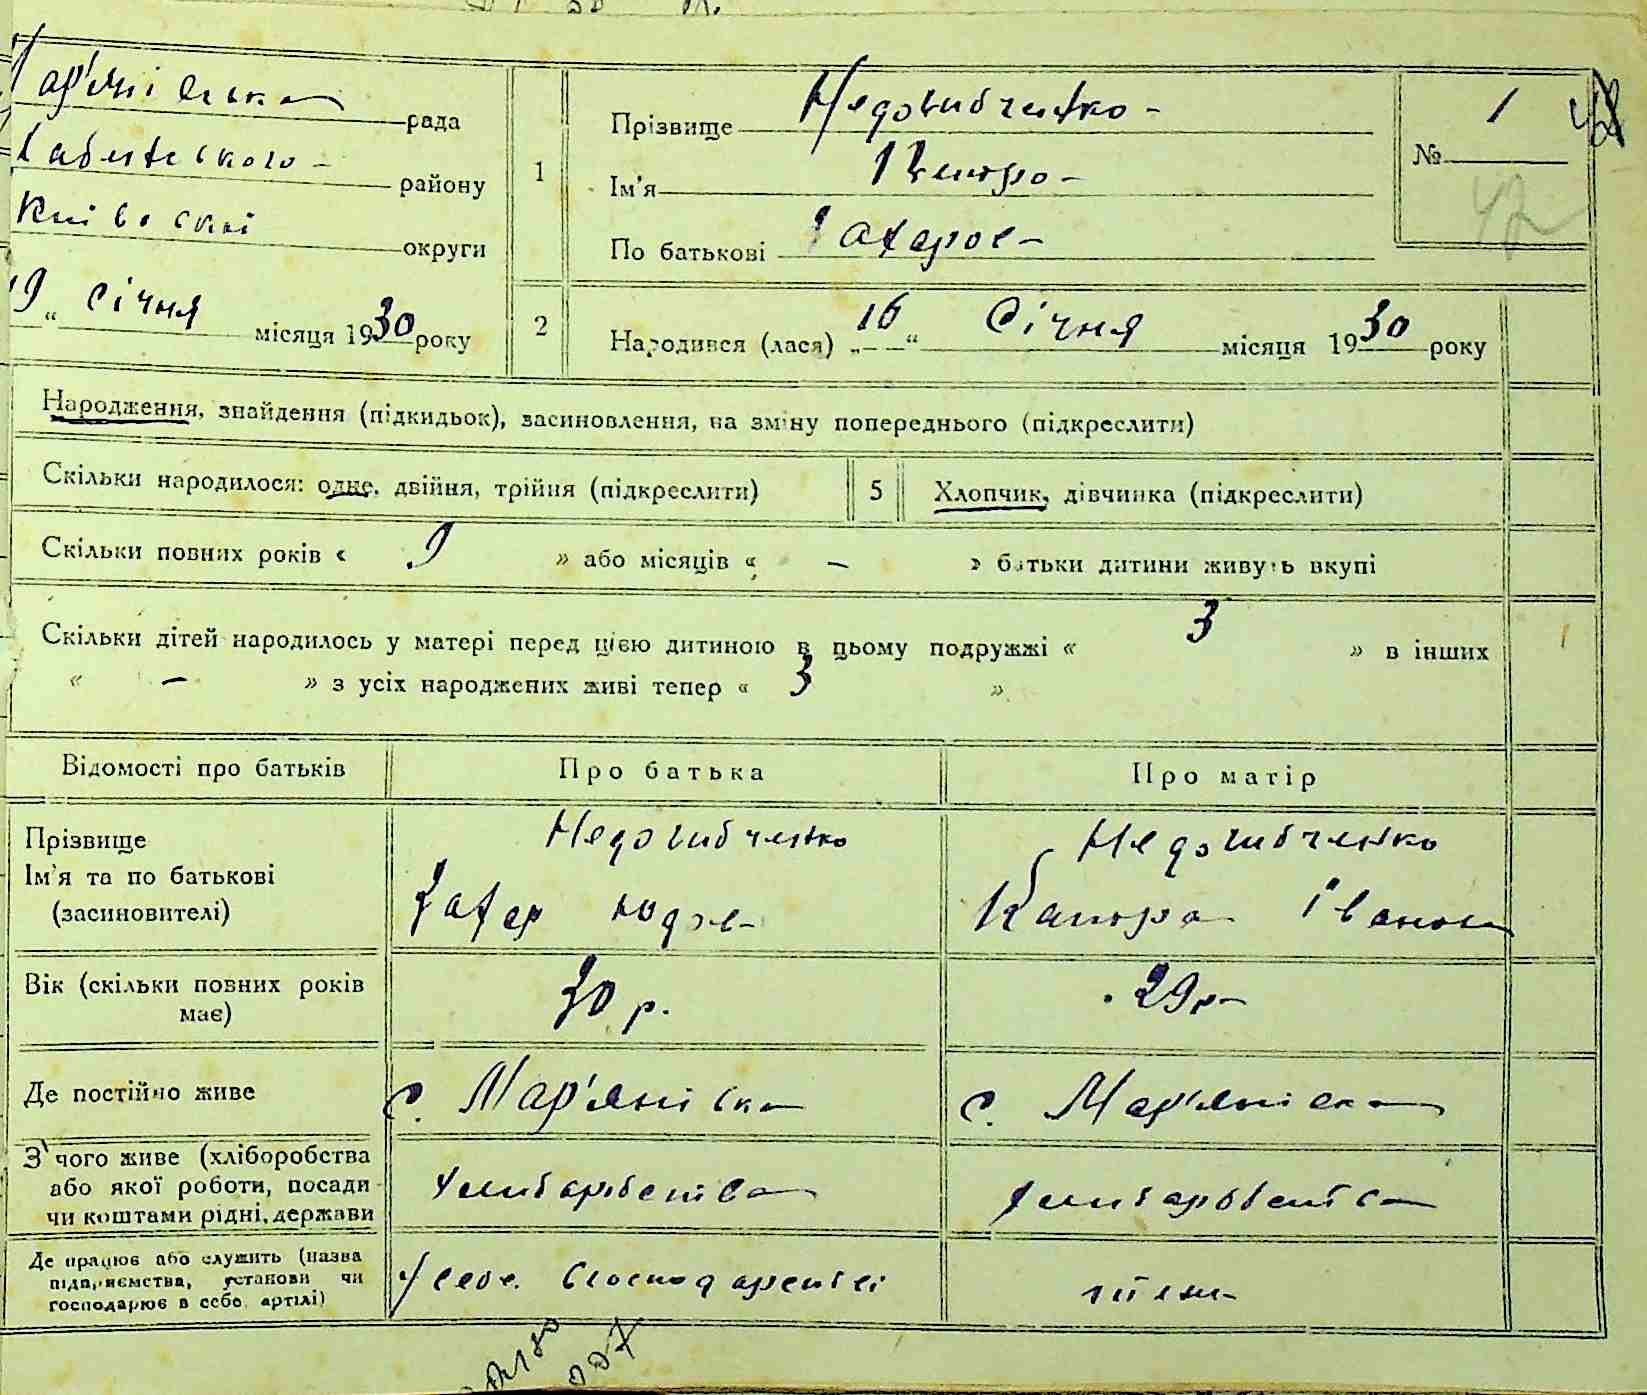 Мар'янівська рада
району
Київської округи
19 " Січня місяця 1930 року
1
Прізвище Недогибченко -
Ім'я Петро -
По батькові Захаров -
№ 1
42
2
Народився (лася) „ 16 “ Січня місяця 1930 року
Народження, знайдення (підкидьок), засиновлення, на зміну попереднього (підкреслити)
Скільки народилося: одне, двійня, трійня (підкреслити)
5
Хлопчик, дівчинка (підкреслити)
Скільки повних років « 9 » або місяців « - » батьки дитини живуть вкупі
Скільки дітей народилось у матері перед цією дитиною в цьому подружжі « 3 » в інших
« - » з усіх народжених живі тепер « 3 »
Відомості про батьків
Про батька
Про матір
Прізвище
Ім'я та по батькові
(засиновителі)
Недогибченко
Захар
Недогибченко
Іванов
Вік (скільки повних років
має)
30 р.
29 р-
Де постійно живе
с. Мар'янівка
с. Мар'янівка
З чого живе (хліборобства
або якої роботи, посади
чи коштами рідні, держави
Хліборобства
Хліборобства
Де працює або служить (назва
підприємства, установи чи
господарює в себе, артілі)
У свое. господарстві